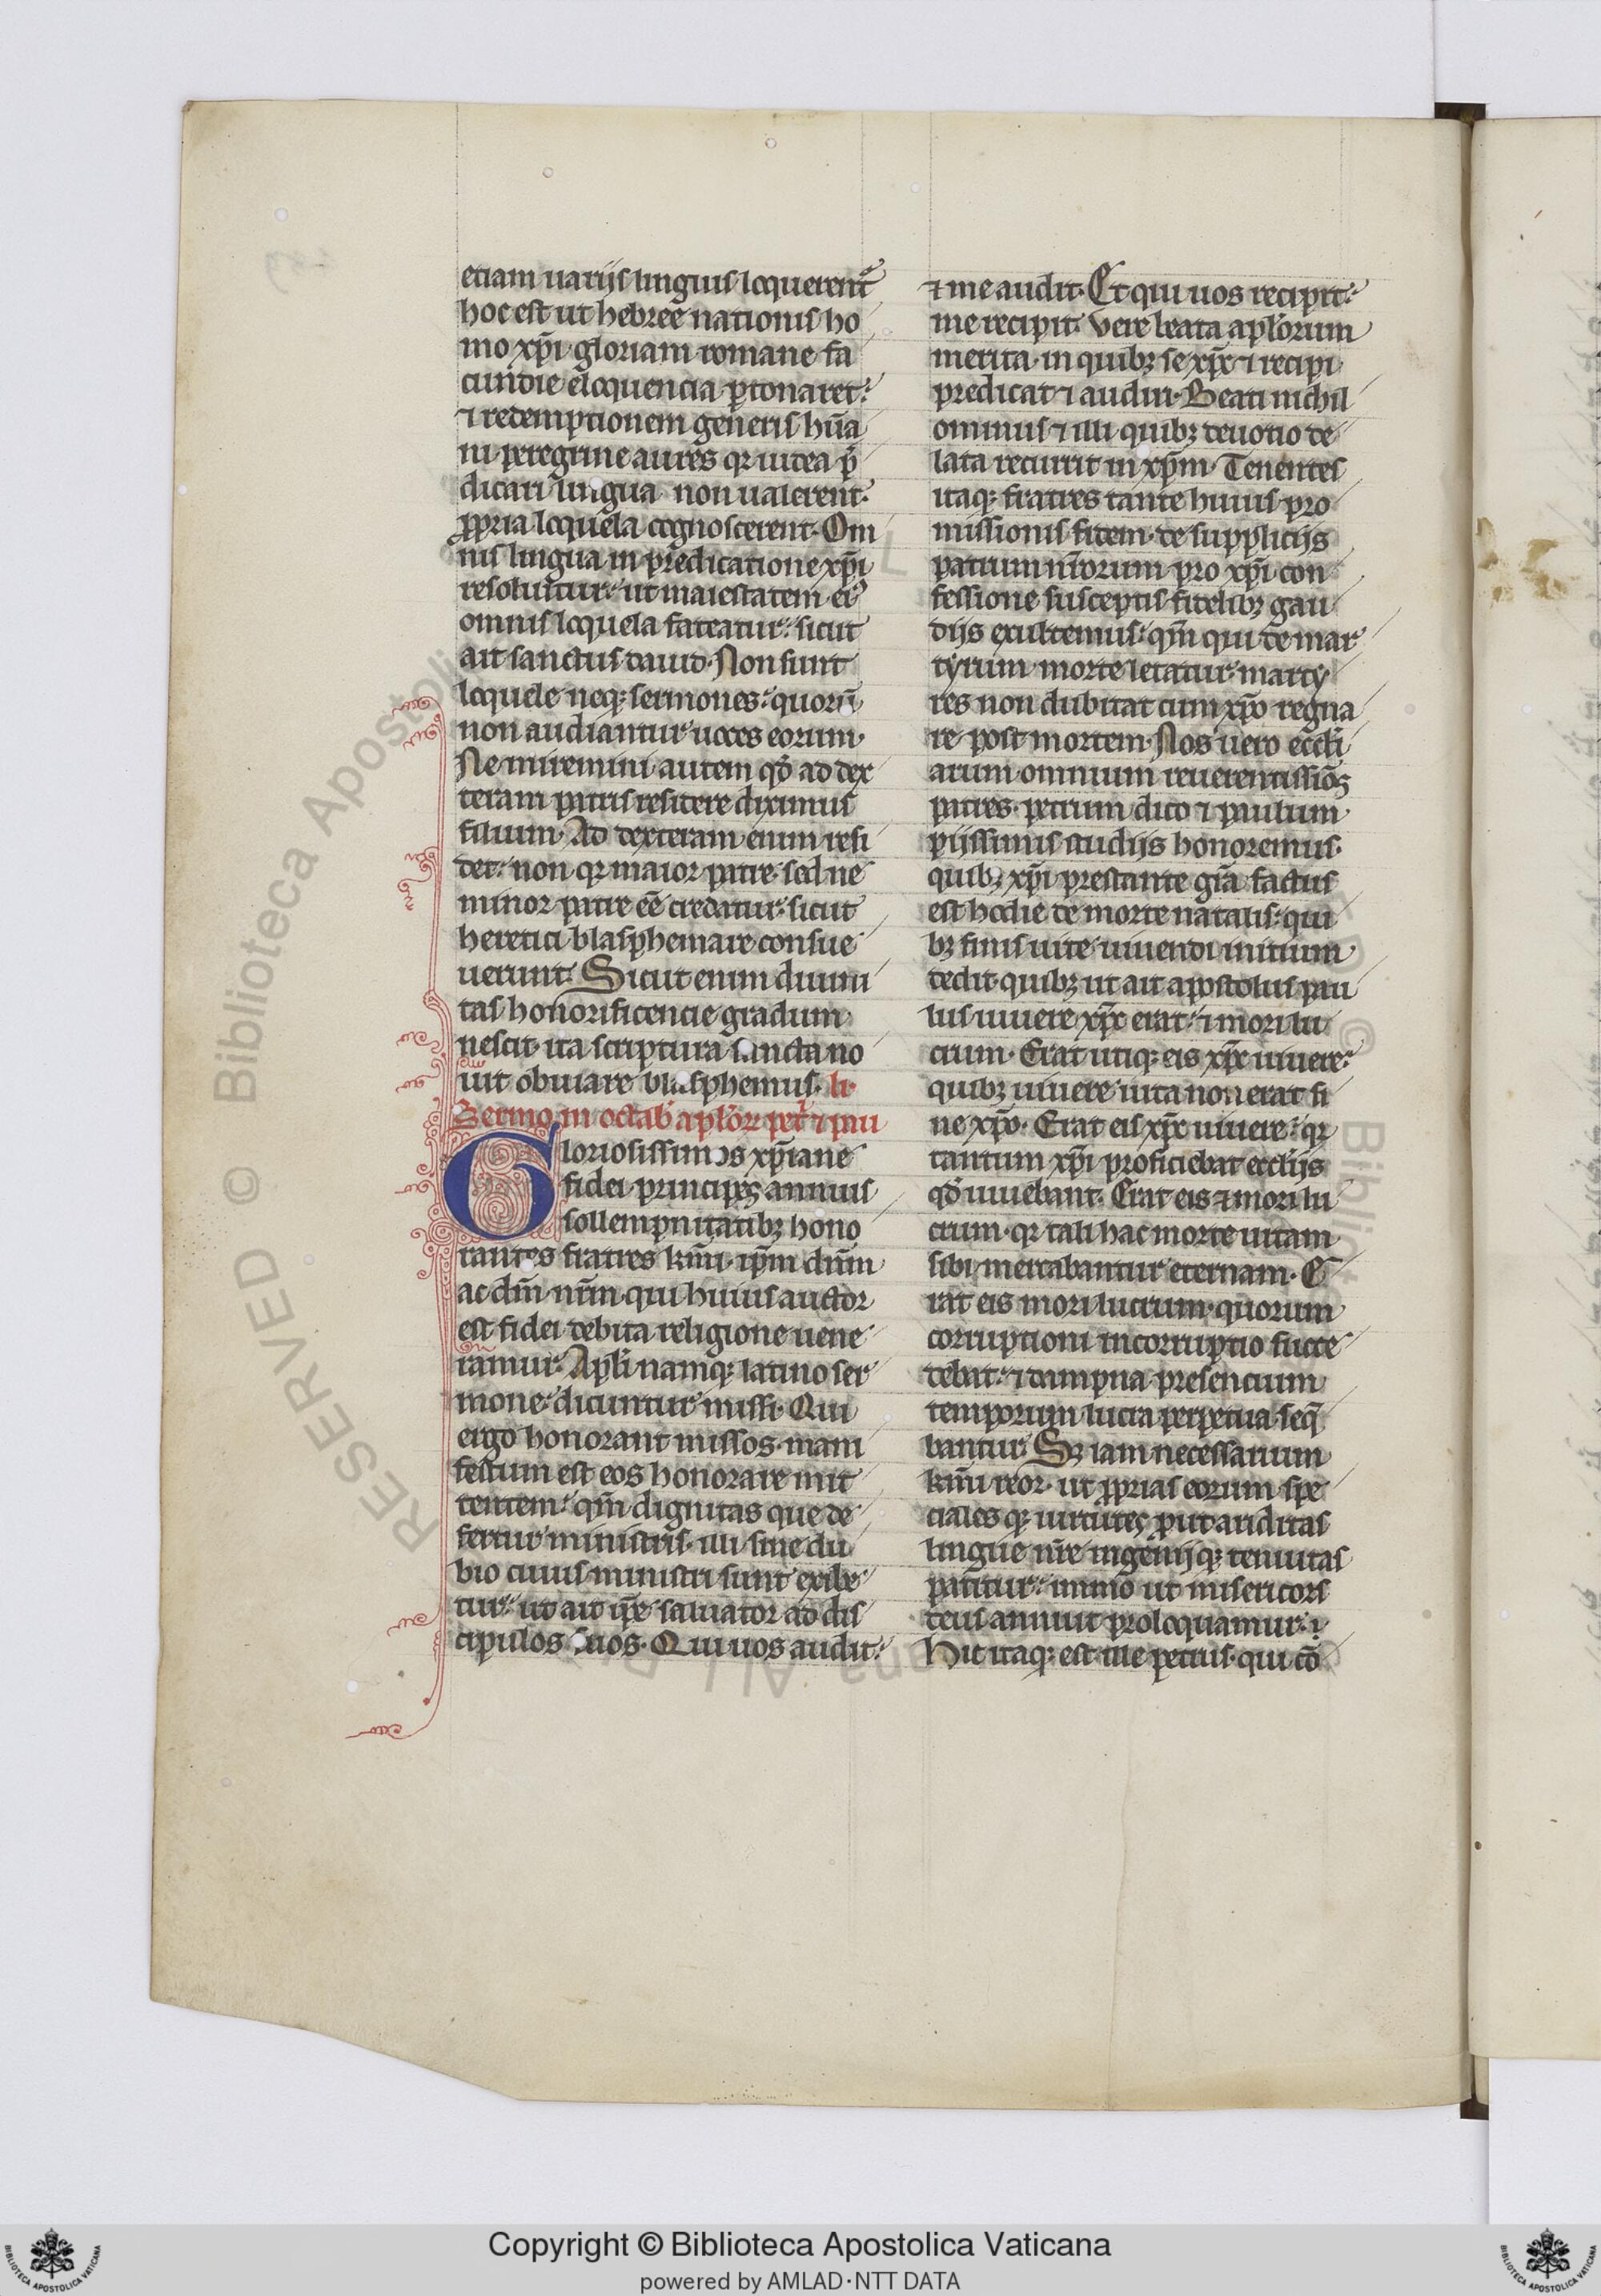 etiam uarijs linguis loquerent᷑
hoc est ut hebree nationis ho
mo xp̄i gloriam romane fa
cundie eloquencia ꝑtonaret:
⁊ redemptionem generis hūa
ni peregrine aures qꝛ iudea p̄
dicari lingua non ualerent.
ꝓpria loquela cognoscerent. Om
nis lingua in predicatione xp̄i
resoluitur: ut maiestatem eiꝰ
omnis loquela fateatur: sicut
ait sanctus dauid. Non sunt
loquele neqꝫ sermones: quoꝛū
non audiantur uoces eorum.
Ne miremini autem qd̓ ad dex
teram patris residere diximus
filium. Ad dexteram enim resi
det: non qꝛ maior patre. sed ne
minor patre eē credatur: sicut
heretici blasphemare consue
uerunt. Sicut enim diuini
tas honorificencie gradum
nescit. ita scriptura sancta no
uit obuiare blasphemus. li.
Sermo in octab̓ apl̓oꝝ pet᷑ ⁊ pau
Gloriosissimos xp̄iane
fidei principes annuis
sollempnitatibꝫ hono
rantes fratres kmī. ip̄m dūm
ac dm̄ nr̄m qui huius auctor
est fidei debita religione uene
ramur. Apl̓i namqꝫ latino ser
mone: dicuntur missi. Qui
ergo honorant missos. mani
festum est eos honorare mit
tentem: qm̄ dignitas que de
fertur ministris. illi sine du
bio cuius ministri sunt exibe
tur: ut ait ip̄e saluator ad dis
cipulos suos. Qui uos audit:
⁊ me audit. Et qui uos recipit:
me recipit. Vere beata apl̓orum
merita. in quibꝫ se xp̄c ⁊ recipi
predicat ⁊ audiri. Beati nichil
ominus ⁊ illi quibꝫ deuotio de
lata recurrit in xp̄m. Tenentes
itaqꝫ fratres tante huius pro
missionis fidem. de supplicijs
patrum nr̄orum pro xp̄i con
fessione susceptis fidelibꝫ gau
dijs exultemus: qm̄ qui de mar
tyrum morte letatur. marty
res non dubitat cum xp̄o regna
re post mortem. Nos uero eccl̓i
arum omnium reuerentissiōs
patres. petrum dico ⁊ paulum
pijssimis studijs honoremus.
quibꝫ xp̄i prestante gr̄a. factus
est hodie de morte natalis: qui
bꝫ finis uite uiuendi initium
dedit. quibꝫ ut ait apostolus pau
lus uiuere xp̄c erat: ⁊ mori lu
crum. Erat utiqꝫ eis xp̄c uiuere:
quibꝫ uiuere uita non erat si
ne xp̄o. Erat eis xp̄c uiuere: qꝛ
tantum xp̄i proficiebat eccl̓ijs
qd̓ uiuebant. Erat eis ⁊ mori lu
crum. qꝛ tali hac morte uitam
sibi mercabantur eternam. E
rat eis mori lucrum. quorum
corruptioni incorruptio succe
debat: ⁊ dampna presencium
temporum lucra perpetua seq̄
bantur. Sꝫ iam necessarium
kmī reor. ut ꝓprias eorum spe
ciales qꝫ uirtutes ꝓut ariditas
lingue nr̄e ingenijqꝫ tenuitas
patitur: immo ut misericors
deus annuit proloquamur. i.
Hic itaqꝫ est ille petrus. qui cō
Copyright © Biblioteca Apostolica Vaticana
powered by AMLAD·NTT DATA